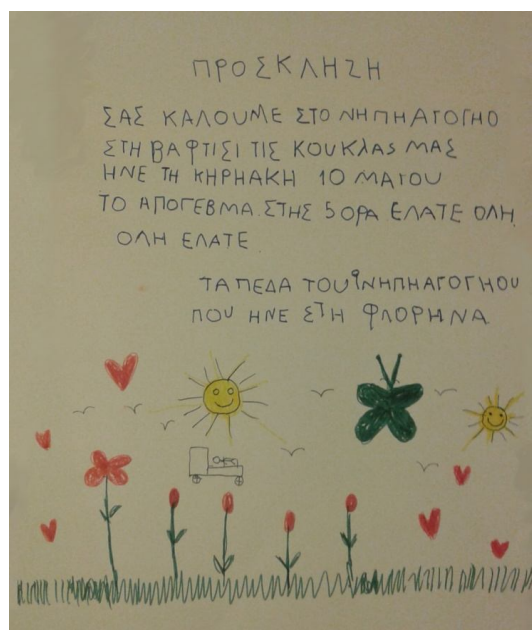 ΠΡΟΣΚΛΗΖΗ
ΣΑΣ ΚΑΛΟΥΜΕ ΣΤΟ ΝΗΠΗΑΓΟΓΗΟ
ΣΤΗ ΒΑΦΤΙΣΙ ΤΙΣ ΚΟΥΚΛΑS ΜΑΣ
ΗΝΕ ΤΗ ΚΗΡΗΑΚΗ 10 ΜΑΤΟΥ
ΤΟ ΑΠΟΓΕΒΜΑ. ΣΤΗΣ 5 ΟΡΑ ΕΛΑΤΕ ΟΛΗ
ΟΛΗ ΕΛΑΤΕ
ΤΑ ΠΕΔΑ ΤΟΥ ΝΗΠΗΑΓΟΓΗΟΥ
ΠΟΥ ΗΝΕ ΣΤΗ ΦΛΟΡΗΝΑ